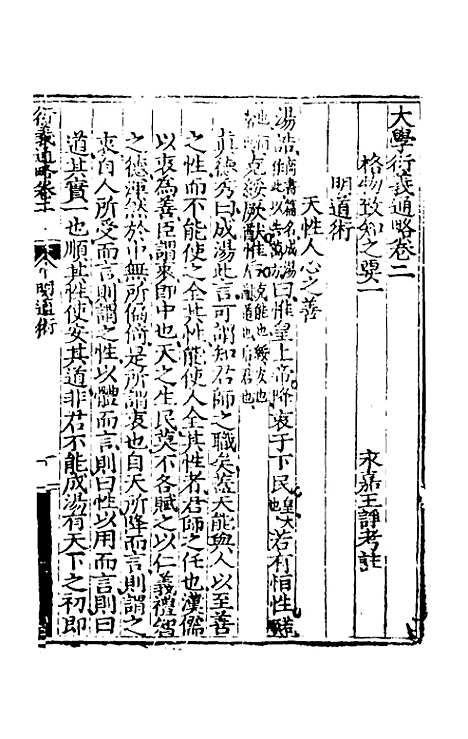 大學衍義通略卷二
格物致知之要一　永嘉王諍考註
明道術
天性人心之善
湯誥尚書篇名成湯曰惟皇上帝降衷于下民皇大也若有恒性
克綏厥猷惟后克能也綏安也
真德秀曰成湯此言可謂知君師之職矣蓋天能與人以至善
之性而不能使之全其性能使人全其性者君師之任也漢儒
以衷為善臣謂衷即中也天之生民莫不各賦之以仁義禮智
之德渾然於中無所偏倚是所謂衷也自天所降而言則謂之
衷自人所受而言則謂之性以體而言則曰性以用而言則曰
道其實一也順其性使安其道非君不能成湯有天下之初即
衍義通略卷二
明道術